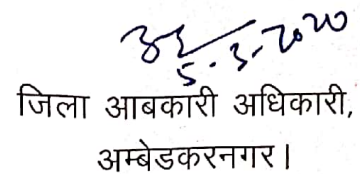 5-3-2020
जिला आबकारी अधिकारी,
अम्बेडकरनगर।